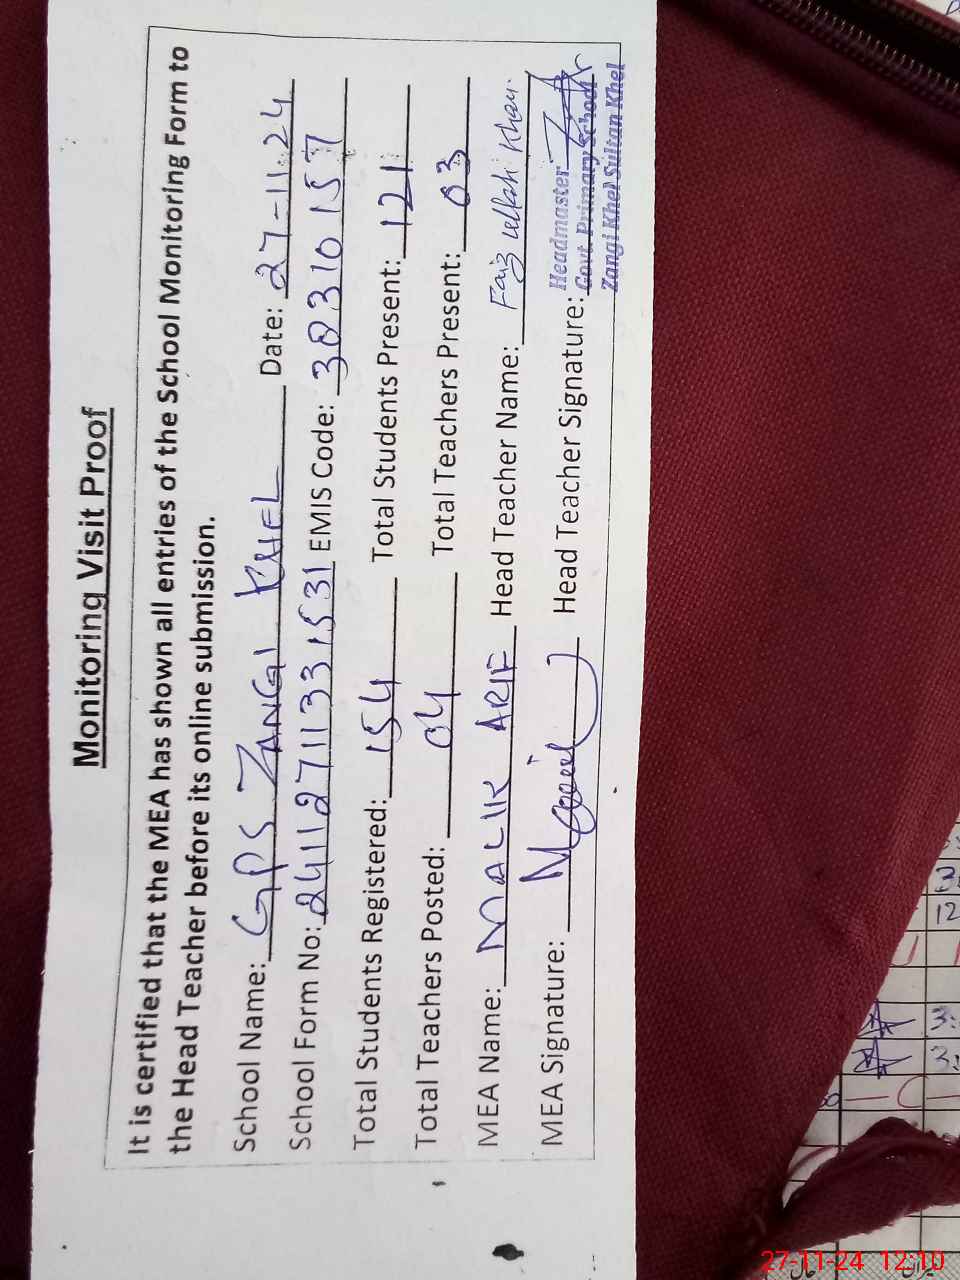 Monitoring Visit Proof
It is certified that the MEA has shown all entries of the School Monitoring Form to
the Head Teacher before its online submission.
School Name: GPS ZANGI KHEL Date: 27-11-24
School Form No: 24112711331531 EMIS Code: 38310157
Total Students Registered: 154 Total Students Present: 121
Total Teachers Posted: 04 Total Teachers Present: 03
MEA Name: MALIK ARIF Head Teacher Name: Faiz Ullah Khan.
MEA Signature: Head Teacher Signature:
Headmaster
Govt. Primary School
Zangi Khel Sultan Khel
27-11-24 12:10